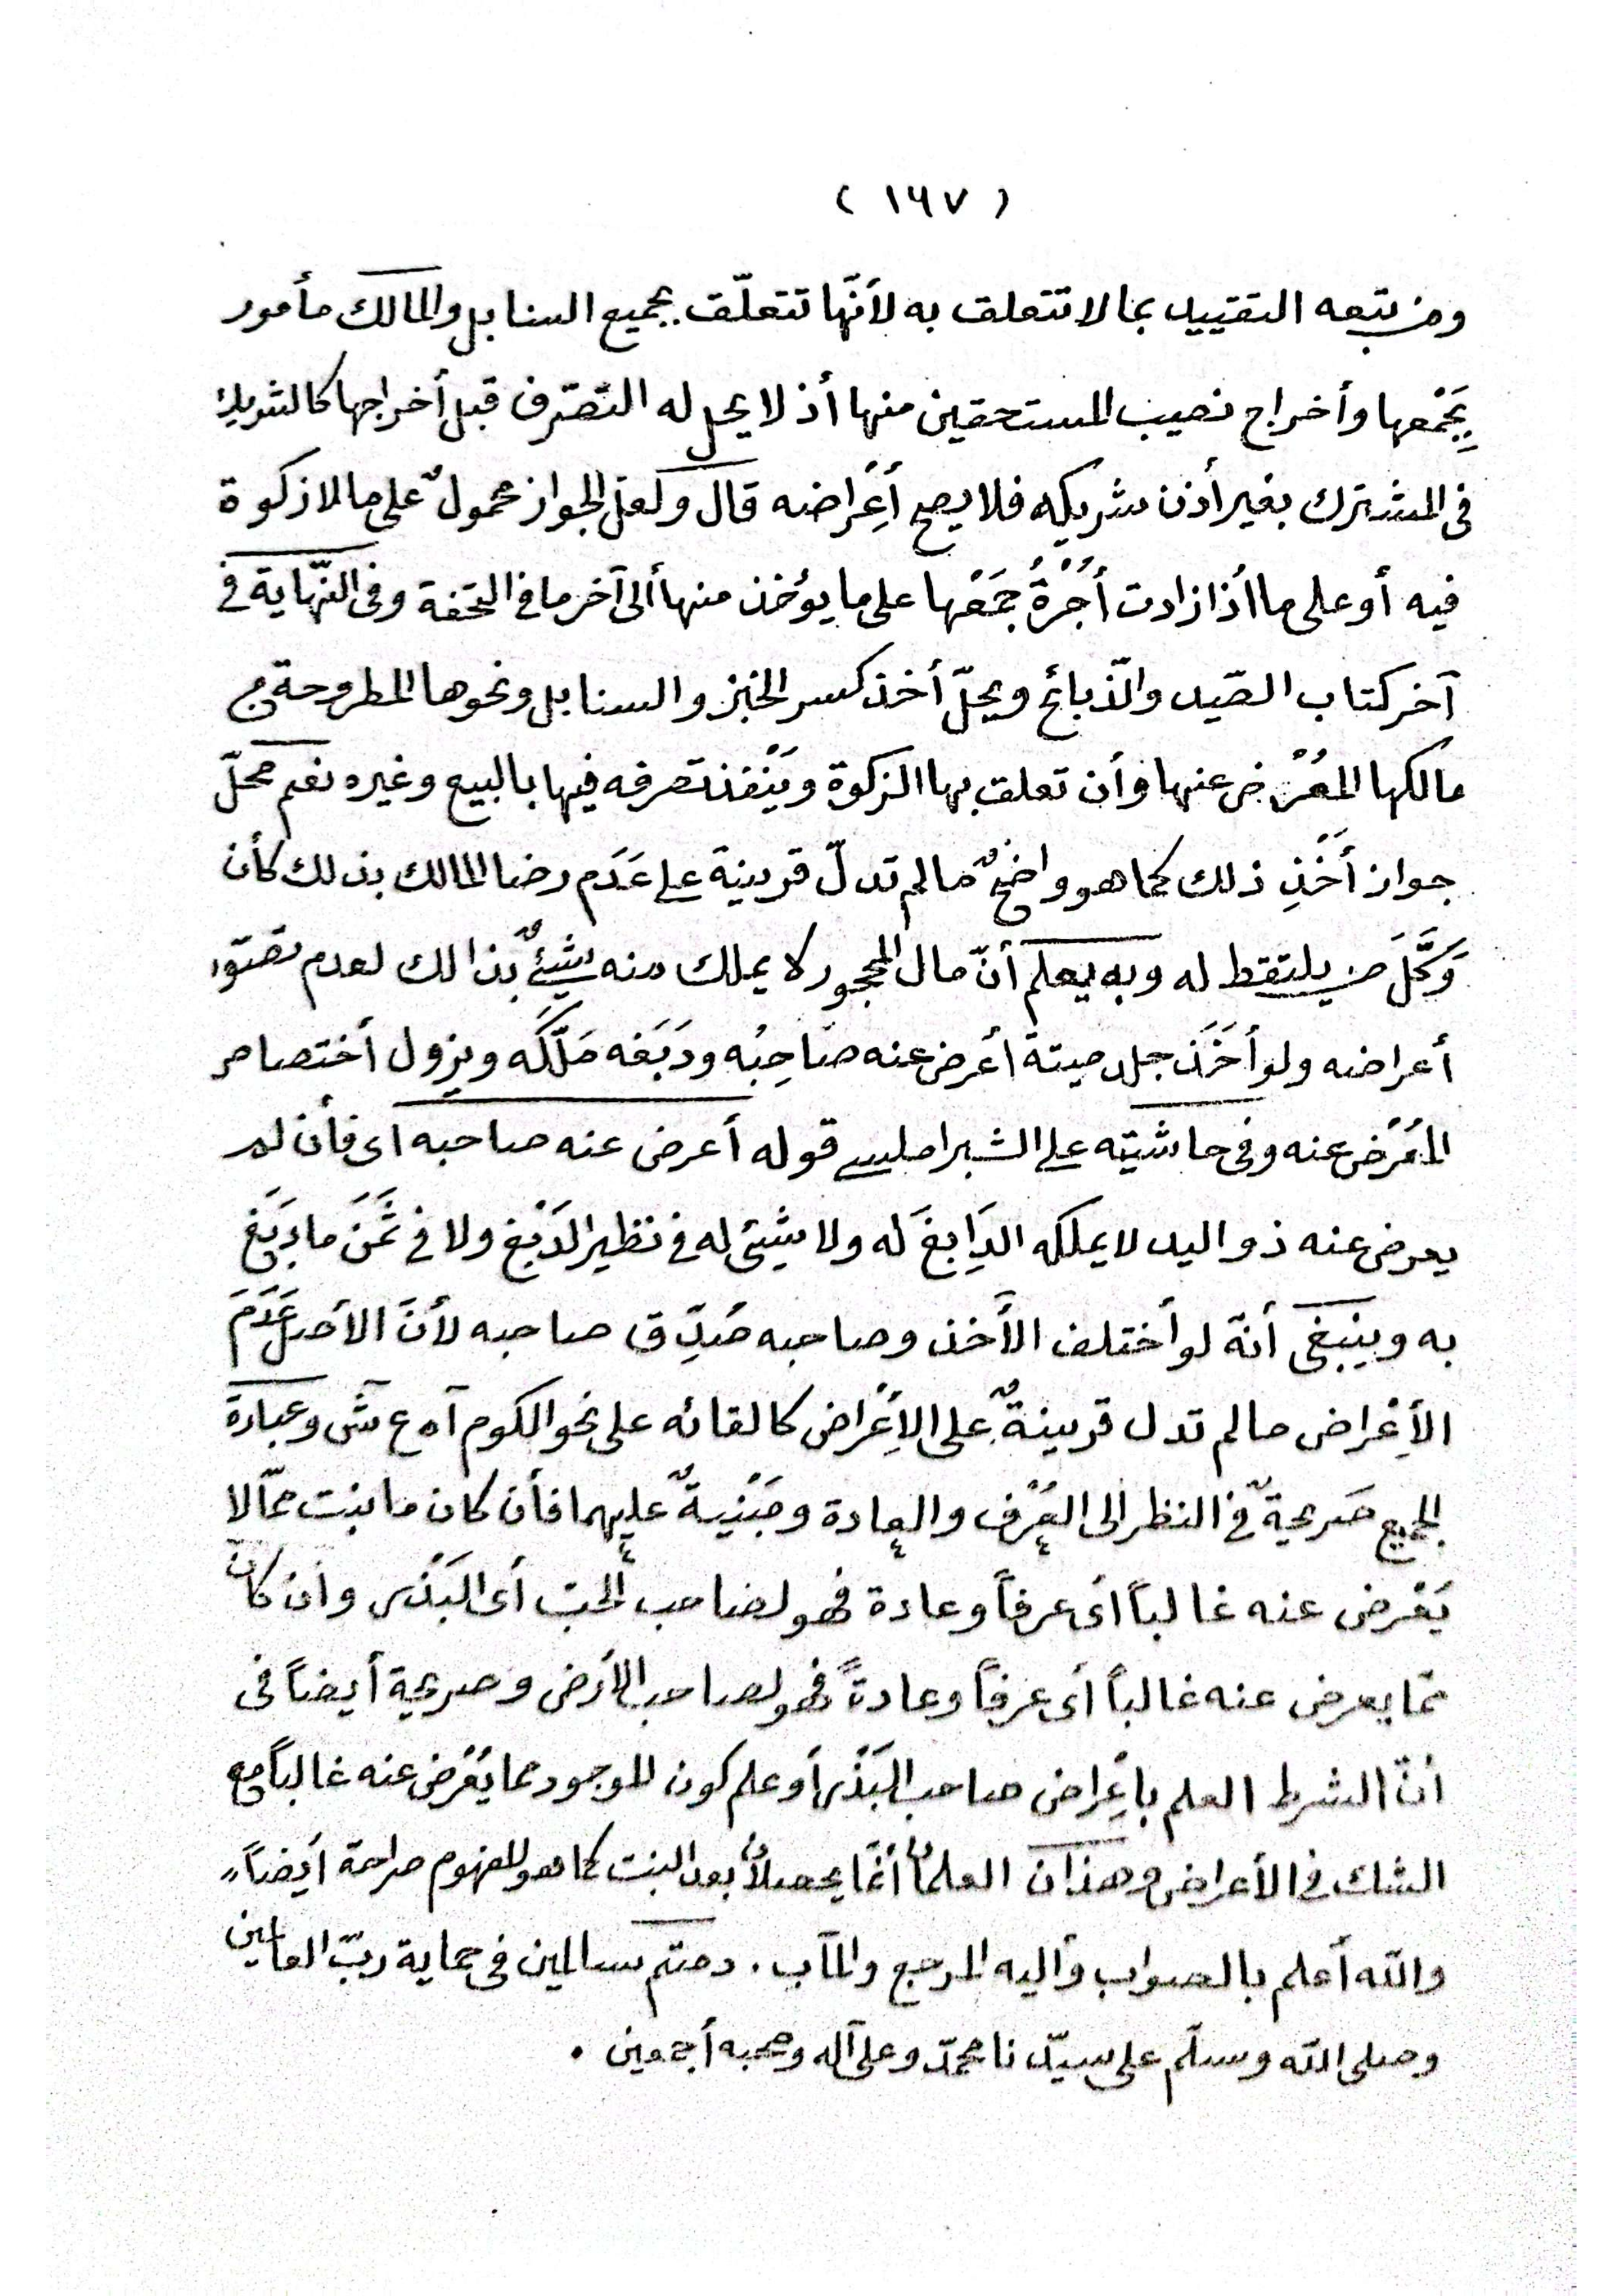 ( ١٦٧ )
ومن تبعه التقييد بما لا تتعلق به لأنّها تتعلّق بجميع السنابل والمالك مأمور
بِجَمْعها وأخراج نصيب المستحقين منها أذ لا يحل له التّصّرف قبل أخراجها كالشريك
فى المشترك بغير أذن شريكه فلا يصح أِعْراضه قال ولعلّ الجواز محمولٌ على مالا زكوة
فيه أو على ما أذا زادت أُجْرَةُ جَمْعها على ما يؤخذ منها ألى آخر ما فى التحفة وفى النّهاية فى
آخر كتاب الصّيد والذّبائح ويحلّ أخذ كسر الخبز والسنابل ونحوها المطروحة من
مالكها المُعْرِض عنها وأن تعلق بها الزكوة ويَنْفذ تصرفه فيها بالبيع وغيره نعم محلّ
جواز أَخْذِ ذلك كما هو واضحٌ مَا لم تدلّ قرينة على عَدَم رضا المالك بذلك كأن
وَكَّلَ من يلتقط له وبه يعلم أنّ مال المحجور لا يملك منه شيئٌ بذالك لعدم تصوّر
أعراضه ولو أَخَذَ جلد ميتة أعرض عنه صَاحِبُه ودَبَغه مَلَّكَه ويزول أختصاص
المُعْرض عنه وفى حاشيته على الشبراملسى قوله أعرض عنه صاحبه اى فأن لم
يعرض عنه ذو اليد لا يملكه الدَابِغَ له ولا شيئ له فى نظير الدَبْغ ولا فى ثَمَنَ ما دَبَغَ
به وينبغى أنّه لو أختلف الأَخذ وصاحبه صُدِّق صاحبه لأنَّ الأصل عَدَمَ
الأِعْراض ما لم تدل قرينةٌ على الأِعْراض كالقائه على نحو الكوم آه ع ش وعبارة
الجميع صَريحةٌ فى النظر الى العُرْف والعادة ومَبْنيةٌ عليهما فأن كان ما ينبت ممّا لا
يَعْرض عنه غالباً اى عرفاً وعادة فهو لصاحب الحبّ أى البَذْر وأن كان
ممّا يعرض عنه غالباً أى عرفاً وعادةً فهو لصاحب الأرض وصريحة أيضاً فى
أنّ الشرط العلم بأِعْراض صاحب البَذْر أو علم كون الموجود مما يُعْرض عنه غالباً مع
الشك فى الأعراض وهذان العلمان أنّما يحصلان بعد النبت كما هو المفهوم صراحة أيضاً،،
والله أعلم بالصواب وأليه المرجع والمآب . دمتم سالمين فى حماية ربّ العالمين
وصلى الله وسلّم على سيّدنا محمّد وعلى آله وصحبه أجمعين .